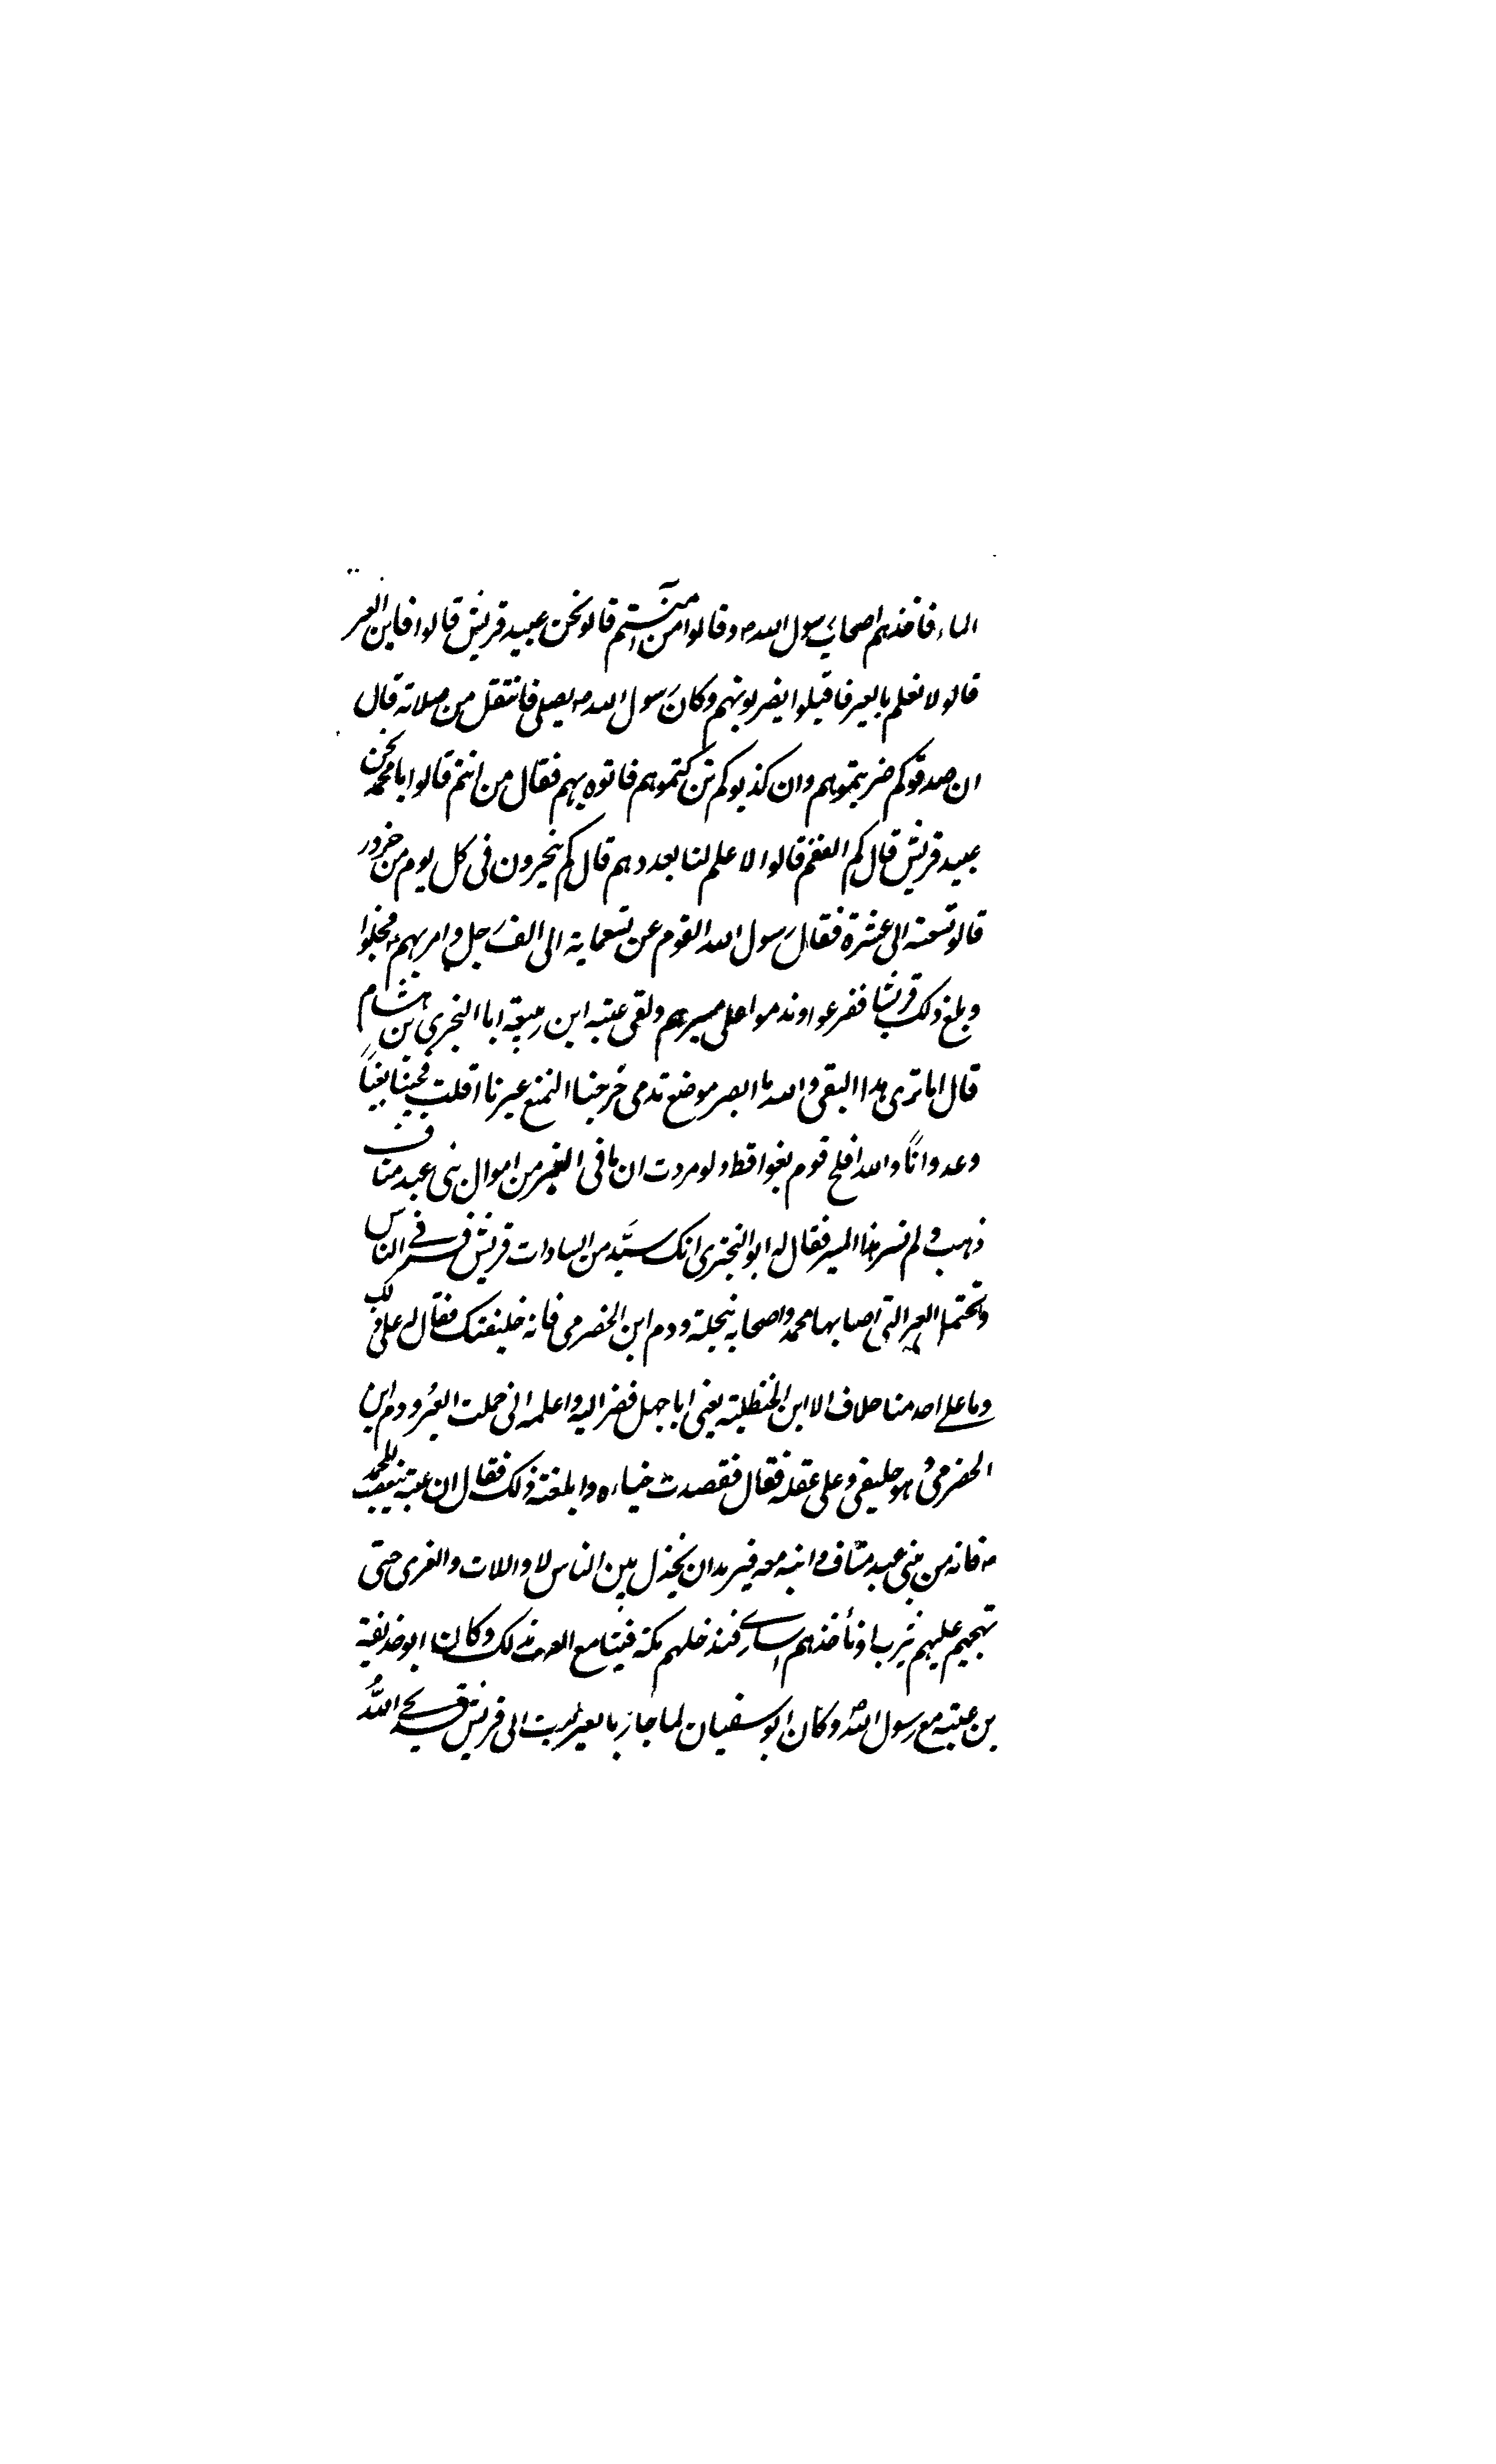 الماء فاخذهم اصحاب رسول الله ص وقالوا من انتم قالو نحن عبيد قريش قالوا فاين العير
قالو لا نعلم بالعير فاقبلوا يضربونهم وكان رسول الله ص يصلي فانتقل من صلاته قال
ان صدقوكم ضربتموهم وان كذبوكم تركتموهم فاتوه بهم فقال من انتم قالوا يا محمد نحن
عبيد قريش قال كم القوم قالوا لا علم لنا بعددهم قال كم ينحرون فى كل يوم من جزور
قالو تسعة الى عشرة فقال رسول الله القوم عن تسعماية الى الف رجل وامر بهم فحبلوا
وبلغ ذلك قريشا ففزعوا وندموا على مسيرهم ولقى عتبة ابن ربيعة ابا البخترى بن هشام
قال اما ترى هذا البقى والله ما ابصر موضع قدمى خرجنا النمنع عيرنا افلت فجينا بغياً
وعدواناً والله افلح قوم بغوا قط ولوددت ان ما فى العير من اموال بنى عبد مناف
ذهب ولم نسر هذا المسير فقال له ابو البخترى انك سيّد من السادات قريش فسر فى الناس
وتحمل العير التى اصابها محمد واصحابه بنخلة ودم ابن الحضرمى فانه خليفتك فقال له على ذلك
وما على احد منا خلاف الا ابن الحنظلية يعنى ابا جهل فصر اليه واعلمه انى حملت العير ودم ابن
الحضرمى وهو حليفى وعلى عقله فقال فقصدت خباءه وابلغته ذلك فقال ان عتبة يتعصب لمحمد
ص فانه من بنى عبد مناف وابنه معه فيريد ان يخذل بين الناس لا واللات والعزى حتى
نهجم عليهم يثرب او نأخذهم اسارى فندخلهم مكة فيتسامع العرب بذلك وكان ابو حذيفة
بن عتبة مع رسول الله وكان ابو سفيان لما جاز بالعير بعث الى قريش قد نجى الله